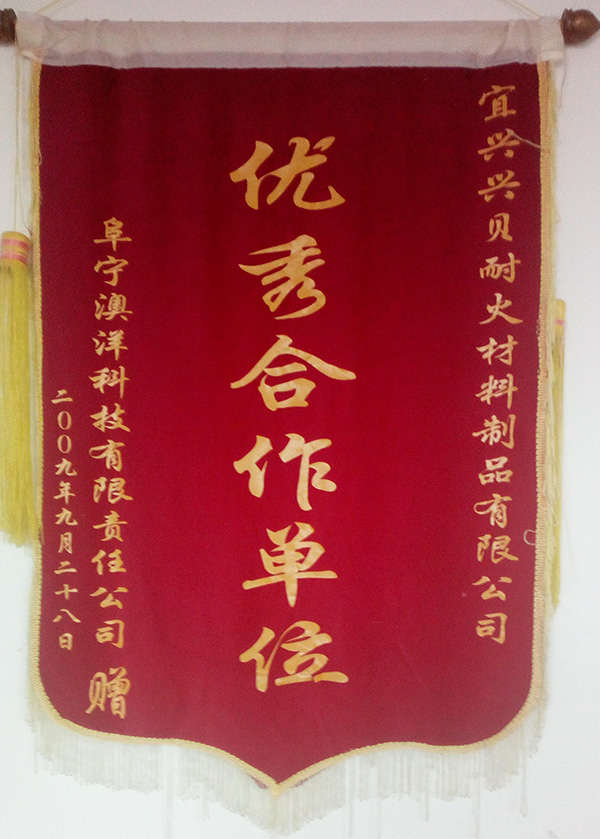 宜兴兴贝耐火材料制品有限公司
优秀合作单位
阜宁澳洋科技有限责任公司 赠
二00九年九月二十八日